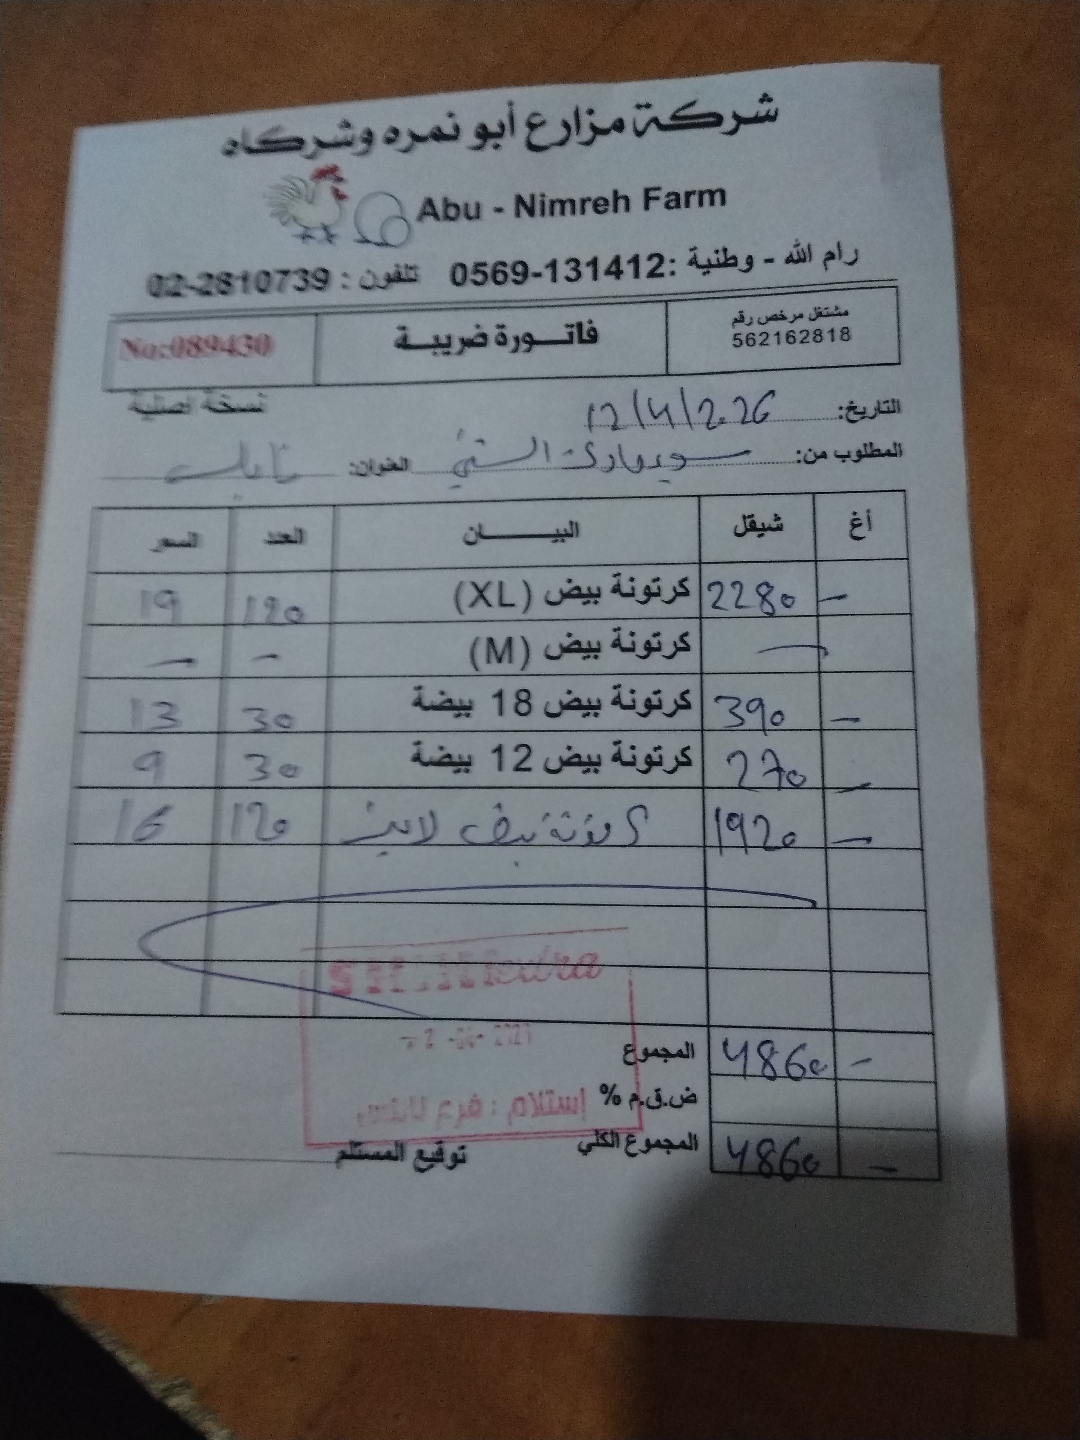 شركة مزارع أبو نمره وشركاه
Abu - Nimreh Farm
رام الله - وطنية :0569-131412 تلفون : 02-2810739
مشتغل مرخص رقم
562162818
فاتورة ضريبة
No:089430
نسخة اصلية
التاريخ: 12/4/2026
المطلوب من: العنوان:
أغ شيقل البيان العدد السعر
- 2280 كرتونة بيض (XL) 120 19
- كرتونة بيض (M) - -
- 390 كرتونة بيض 18 بيضة 30 13
- 270 كرتونة بيض 12 بيضة 30 9
- 1920 كرتونة بيض 120 16
المجموع 4860 -
ض.ق.م %
المجموع الكلي 4860 -
توقيع المستلم
إستلام : فرع نابلس